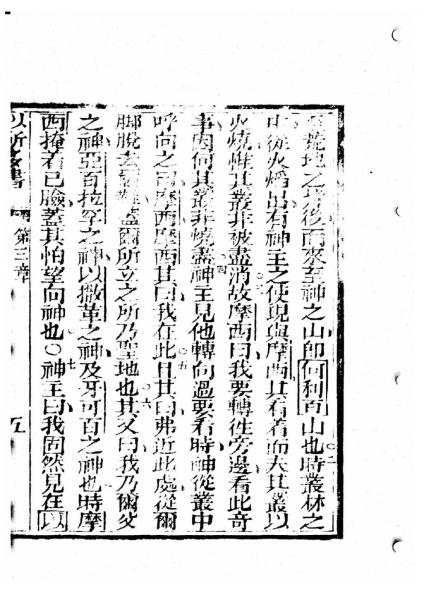 荒地之旁後而來至神之山卽何利百山也時叢林之
中從火焰出有神主之使現與摩西其看着而夫其叢以
火燒惟其叢非被盡消故摩西曰我要轉徃旁邊看此奇
事因何其叢非燒盡神主見他轉向過要看時神從叢中
呼向之曰摩西摩西其曰我在此且其曰弗近此處從爾
脚脫去鞋蓋爾所立之所乃聖地也其又曰我乃爾父
之神亞百拉罕之神以撒革之神及牙可百之神也時摩
西掩着已臉蓋其怕望向神也○神主曰我固然見在以
以所多書 第三章 五